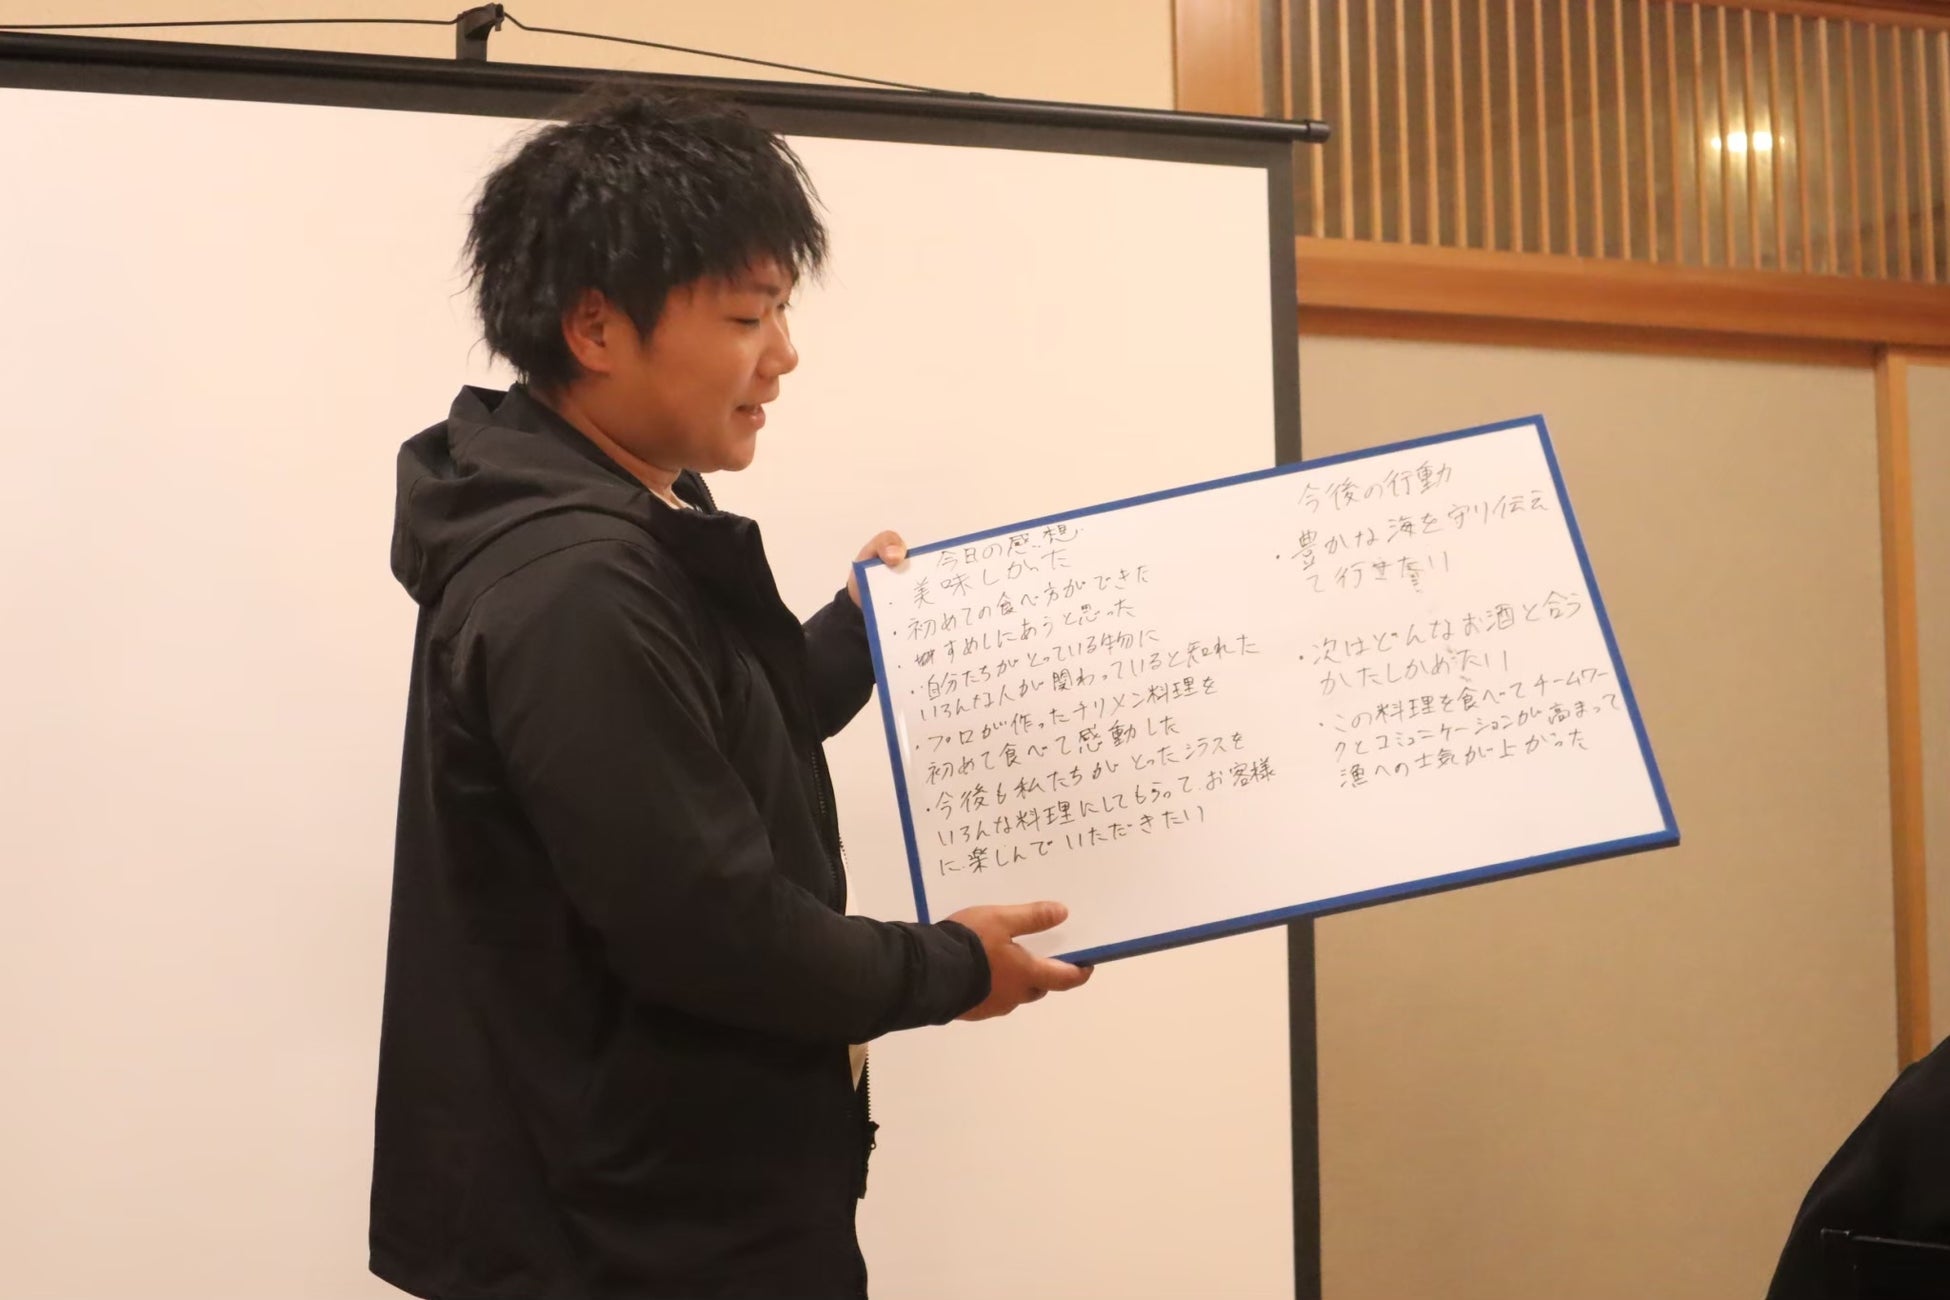 今日の感想
・美味しかった
・初めての食べ方ができた
・すめしにあうと思った
・自分たちがとっている生物に
いろんな人が関わっていると知れた
・プロが作ったチリメン料理を
初めて食べて感動した
・今後も私たちがとったシラスを
いろんな料理にしてもらって、お客様
に楽しんでいただきたい
今後の行動
・豊かな海を守り伝え
て行きたい
・次はどんなお酒と合う
かたしかめたい
・この料理を食べてチームワー
クとコミュニケーションが高まって
漁への士気が上がった